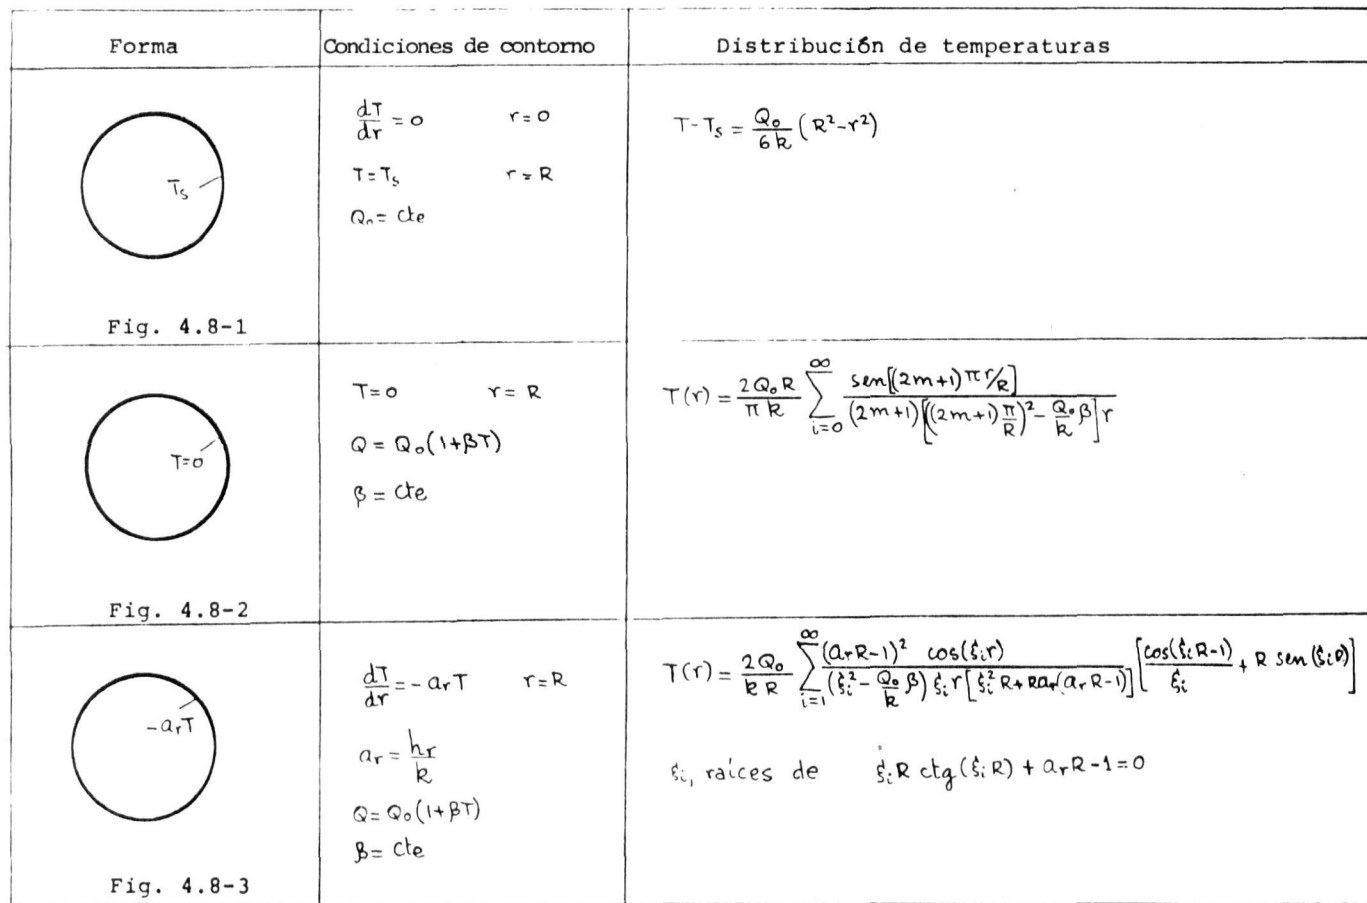 Forma Condiciones de contorno Distribución de temperaturas
dT/dr = 0 r = 0
T = Ts r = R
Q₀ = cte
T - Ts = Q₀/6k (R² - r²)
Ts
Fig. 4.8-1
T = 0 r = R
Q = Q₀(1+βT)
β = cte
T(r) = 2Q₀R/πk ∑_{i=0}^{∞} sen[(2m+1)πr/R] / (2m+1)[((2m+1)π/R)² - Q₀/k β]r
T=0
Fig. 4.8-2
dT/dr = -a_r T r = R
a_r = h_r/k
Q = Q₀(1+βT)
β = cte
T(r) = 2Q₀/kR ∑_{i=1}^{∞} (a_r R-1)² cos(ξᵢr) / (ξᵢ² - Q₀/k β) ξᵢr [ξᵢ²R + Ra_r(a_r R-1)] [cos(ξᵢR-1)/ξᵢ + R sen(ξᵢR)]
ξᵢ, raíces de ξᵢR ctg(ξᵢR) + a_r R - 1 = 0
-a_r T
Fig. 4.8-3